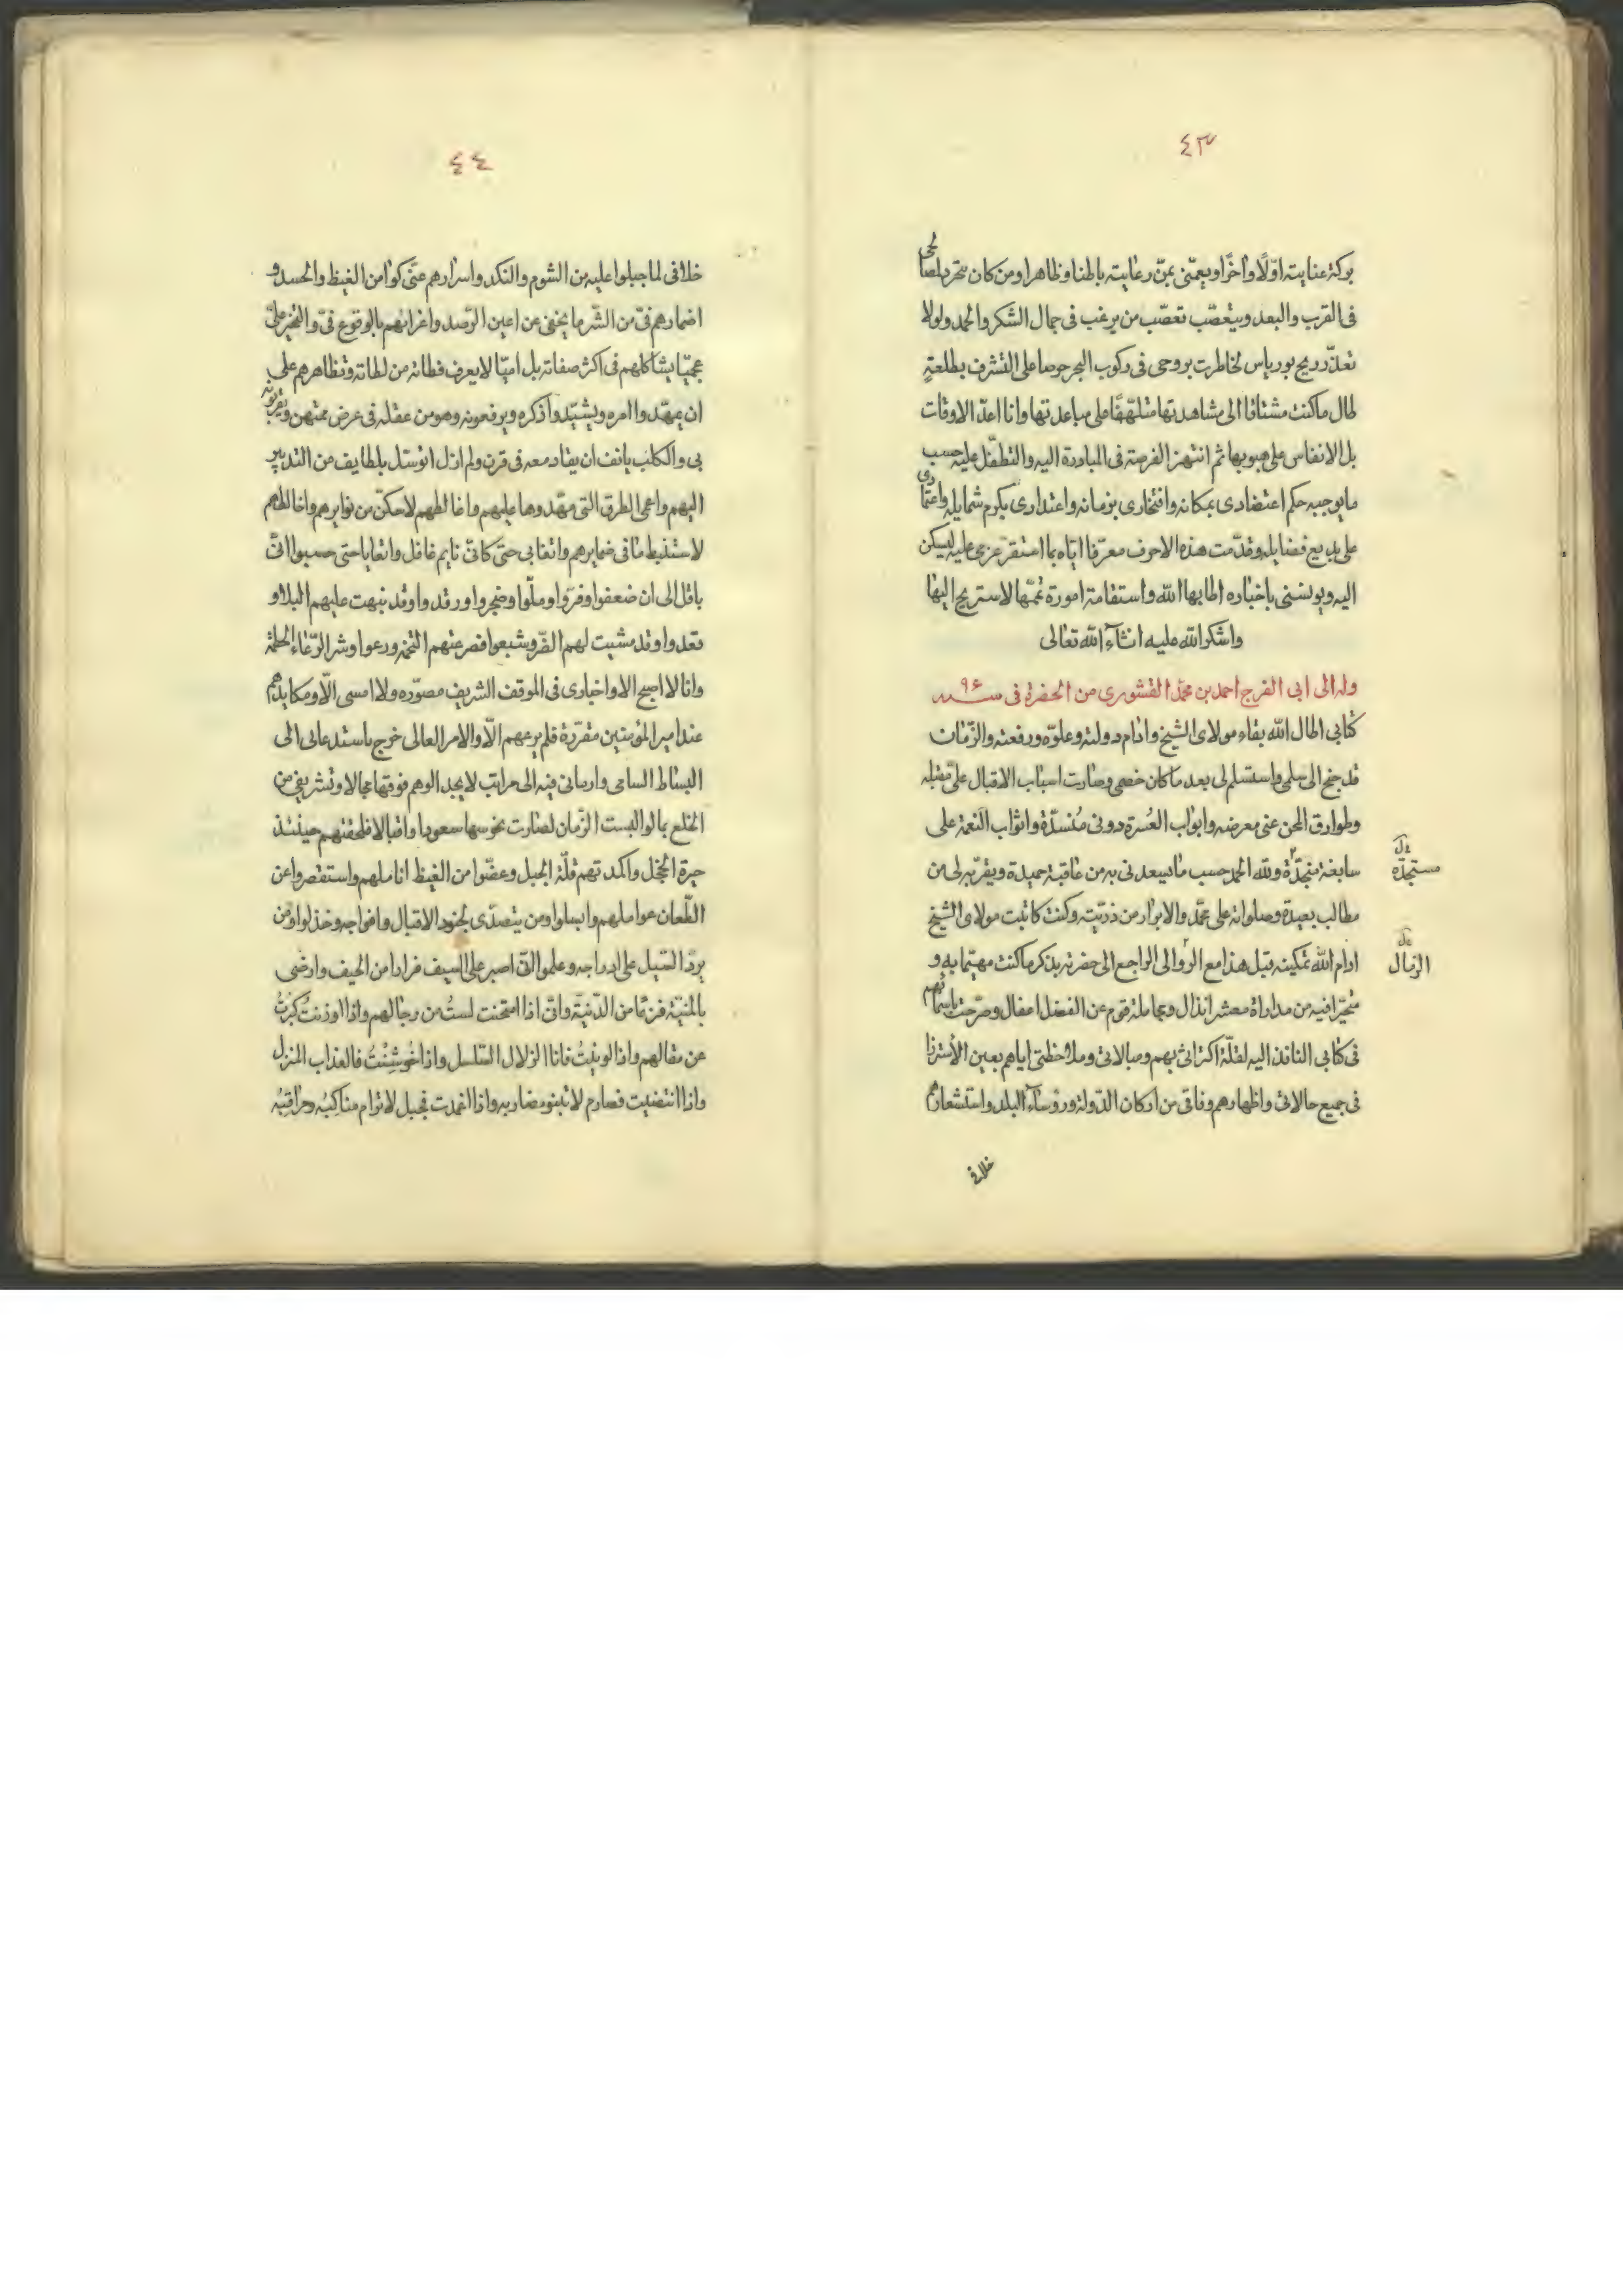 ٤٣
بركة عنايته اوّلًا واخرًا ويعمّنى بمنّ رعايته باطنا وظاهرا ومن كان يتحرد لمصالحى
فى القرب والبعد ويتعصّب تعصّب من يرغب فى جمال الشكر والحمد ولولا
تعذّر ريح بورياس لخاطرت بروحى فى ركوب البحر حرصا على التشرف بطلعةٍ
طال ما كنت مشتاقا الى مشاهدتها متلهّفًا على مباعدتها وانا اعدّ الاوقات
بل الانفاس على هبوبها ثم انتهز الفرصة فى المبادرة اليه والتطفّل عليه حسب
ما يوجبه حكم اعتضادى بمكانه وافتخارى بزمانه واعتدادى بكرم شمايله واعتمادى
على بديع فضايله وقدّمت هذه الاحرف معرّفا ايّاه بما استقرّ عزمى عليه ليسكن
اليه ويونسنى باخباره اطابها الله واستقامة اموره تمّمها لاستريح اليها
واشكر الله عليه انشآء الله تعالى
وله الى ابى الفرج احمد بن محمّد القشورى من الحضرة فى سنه ٩٦
كتابى اطال الله بقاء مولاى الشيخ وادام دولته وعلوّه ورفعته والزّمان
قد جنح الى سلمى واستسلم لى بعد ما كان خصمى وصارت اسباب الاقبال علىّ مقبله
وطوارق المحن عنى معرضه وابواب العُسرة دونى مُنسدّة واثواب النعمة على
سابغة متجدّدة ولله الحمد حسب ما يسعدنى به من عاقبة حميدة ويقرّبه لى من
مستجدّة
مطالب بعيدة وصلواته على محمّد والابرار من ذريّته وكنت كاتبت مولاى الشيخ
ادام الله تمكينه قبل هذا مع الروالى الراجع الى حضرته بذكر ما كنت مهتما به و
الزبال
متحيّرا فيه من مداراة معشر انذال ومعاملة قوم عن الفضل اغفال وصرّحت باسمائهم
فى كتابى النافذ اليه لقلّة اكتراثى بهم ومبالاتى وملاحظتى اياهم بعين الأستزراء
فى جميع حالاتى واظهارهم وفاقى من اركان الدّولة ورؤساء البلد واستشعارهم
خلافى
٤٤
خلافى لما جبلوا عليه من الشوم والنكد واسرارهم عنّى كوامن الغيظ والحسد و
اضمارهم فىّ من الشّر ما يخفى عن اعين الرّصد واغرائهم بالوقوع فىّ والتخير علىّ
عجميّا يشاكلهم فى اكثر صفاته بل اميّا لا يعرف فطانه من لطاته وتظاهرهم على
ان يمهّدوا امره ويشيّدوا ذكره ويرفعونه وهو من عقله فى عرض ممتهن ويقرنونه
بى والكلب يانف ان يقاد معه فى قرن ولم ازل اتوسّل بلطايف من التدبير
اليهم واعمى الطرق التى مهّدوها عليهم واغالطهم لاتمكنّ من نوايرهم واخالطهم
لاستنبط ما فى ضمايرهم واتغابى حتى كانّى نايم غافل واتعايا حتى حسبوا انّى
باقل الى ان ضعفوا وفرّوا وملّوا وضجروا ورقدوا وقد نبهت عليهم البلا و
قعدوا وقد مشيت لهم الضّر وشبعوا فصرعتهم التخمه ورعوا وشر الرّعاء الحطمة
وانا لا اصبح الا واخبارى فى الموقف الشريف مصوّره ولا امسى الّا ومكايدهم
عند امير المؤمنين مقرّرة فلم يرعهم الّا والامر العالى خرج باستدعائى الى
البساط السامى وارسانى فيه الى مراتب لا يجد الوهم فوقها مجالا وتشريفى من
الخلع بما لو البست الزّمان لصارت نحوسها سعودا واقبالا فلحقتهم حينئذ
حيرة الخجل واكمدتهم قلّة الحيل وعضّوا من الغيظ اناملهم واستقصروا عن
الطّعان عواملهم وابسلوا ومن يتصدّى لجنود الاقبال وافواجه وخذلوا ومن
يردّ السّيل على ادراجه وعلموا انّى اصبر على السيف فرارا من الحيف وارضى
بالمنيّة فرقا من الدّنيّة وانّى اذا امتحنت لستُ من رجالهم واذا اوذنتُ كبرتُ
عن مقالهم واذا لوينتُ فانا الزلال السّلسل واذا خُوشِنْتُ فالعذاب المنزل
واذا انتضيت فصارم لا تنبو مضاربه واذا اغمدت فجبل لا ترام مناكبُه ومراقبُه